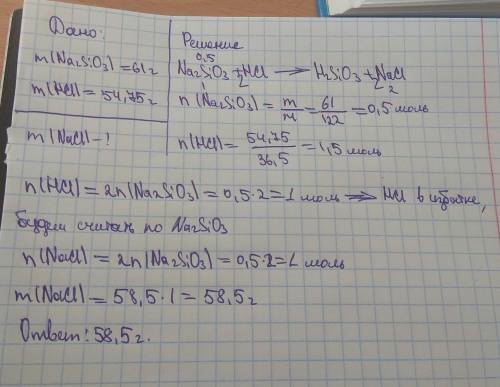 Дано:
m(Na₂SiO₃)=61г
m(HCl)=54,75г
m(NaCl)-?
Решение
0,5
Na₂SiO₃+2HCl → H₂SiO₃+2NaCl
1 2 2
n(Na₂SiO₃)=m/M=61/122=0,5 моль
n(HCl)=54,75/36,5=1,5 моль
n(HCl)=2n(Na₂SiO₃)=0,5·2=1 моль ⇒ HCl в избытке,
будем считать по Na₂SiO₃
n(NaCl)=2n(Na₂SiO₃)=0,5·2=1 моль
m(NaCl)=58,5·1=58,5г
Ответ: 58,5г.